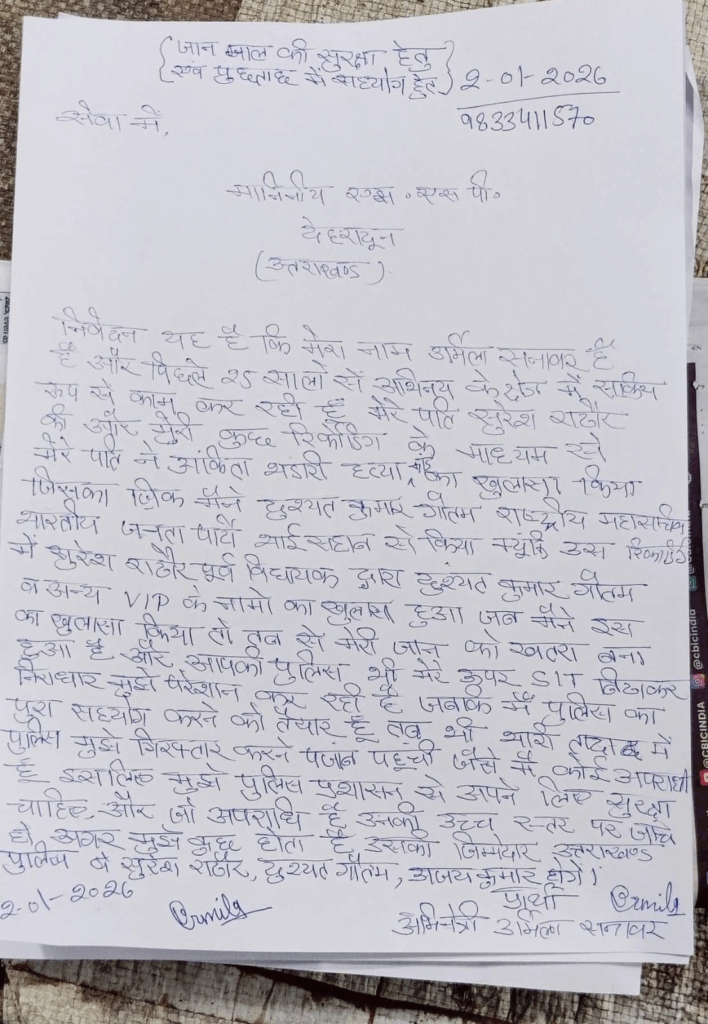 {जान माल की सुरक्षा हेतु}
{एवं पुछताछ में सहयोग हेतु}
2-01-2026
9833411570
सेवा में,
माननीय एस॰एस पी॰
देहरादून
(उत्तराखण्ड)
निवेदन यह है कि मेरा नाम उर्मिला सनावर है
है और पिछले 25 सालों से अभिनय के क्षेत्र में सक्रिय
रूप से काम कर रही हूँ मेरे पति सुरेश राठौर
की और मेरी कुछ रिकॉडिंग के माध्यम से
मेरे पति ने अंकिता भंडारी हत्या कांड का खुलासा किया
जिसका ज़िक्र मैंने दुश्यत कुमार गौतम राष्ट्रीय महासचिव
भारतीय जनता पार्टी भाईसहाब से किया क्यूंकि उस रिकॉर्डिंग
में सुरेश राठौर पूर्व विधायक द्वारा दुश्यंत कुमार गौतम
व अन्य VIP के नामो का खुलासा हुआ जब मैंने इस
का खुलासा किया तो तब से मेरी जान को खतरा बना
हुआ है और आपकी पुलिस भी मेरे ऊपर SIT बिठाकर
निराधार मुझे परेशान कर रही है जबकि मैं पुलिस का
पुरा सहयोग करने को तैयार हूँ तब भी भारी तादाद में
पुलिस मुझे गिरफ्तार करने पंजाब पहूंची जैसे मैं कोई अपराधी
हूँ इसलिए मुझे पुलिस प्रशासन से अपने लिए सुरक्षा
चाहिए और जो अपराधि है उनकी उच्च स्तर पर जाँच
हो अगर मुझे कुछ होता है उसकी जिम्मेदार उत्तराखण्ड
पुलिस व सुरेश राठौर, दुश्यत गौतम, अजय कुमार होगें।
2-01-2026
प्रार्थी
Urmila
Urmila
अभिनेत्री उर्मिला सनावर
@cbicindia
@CBICINDIA